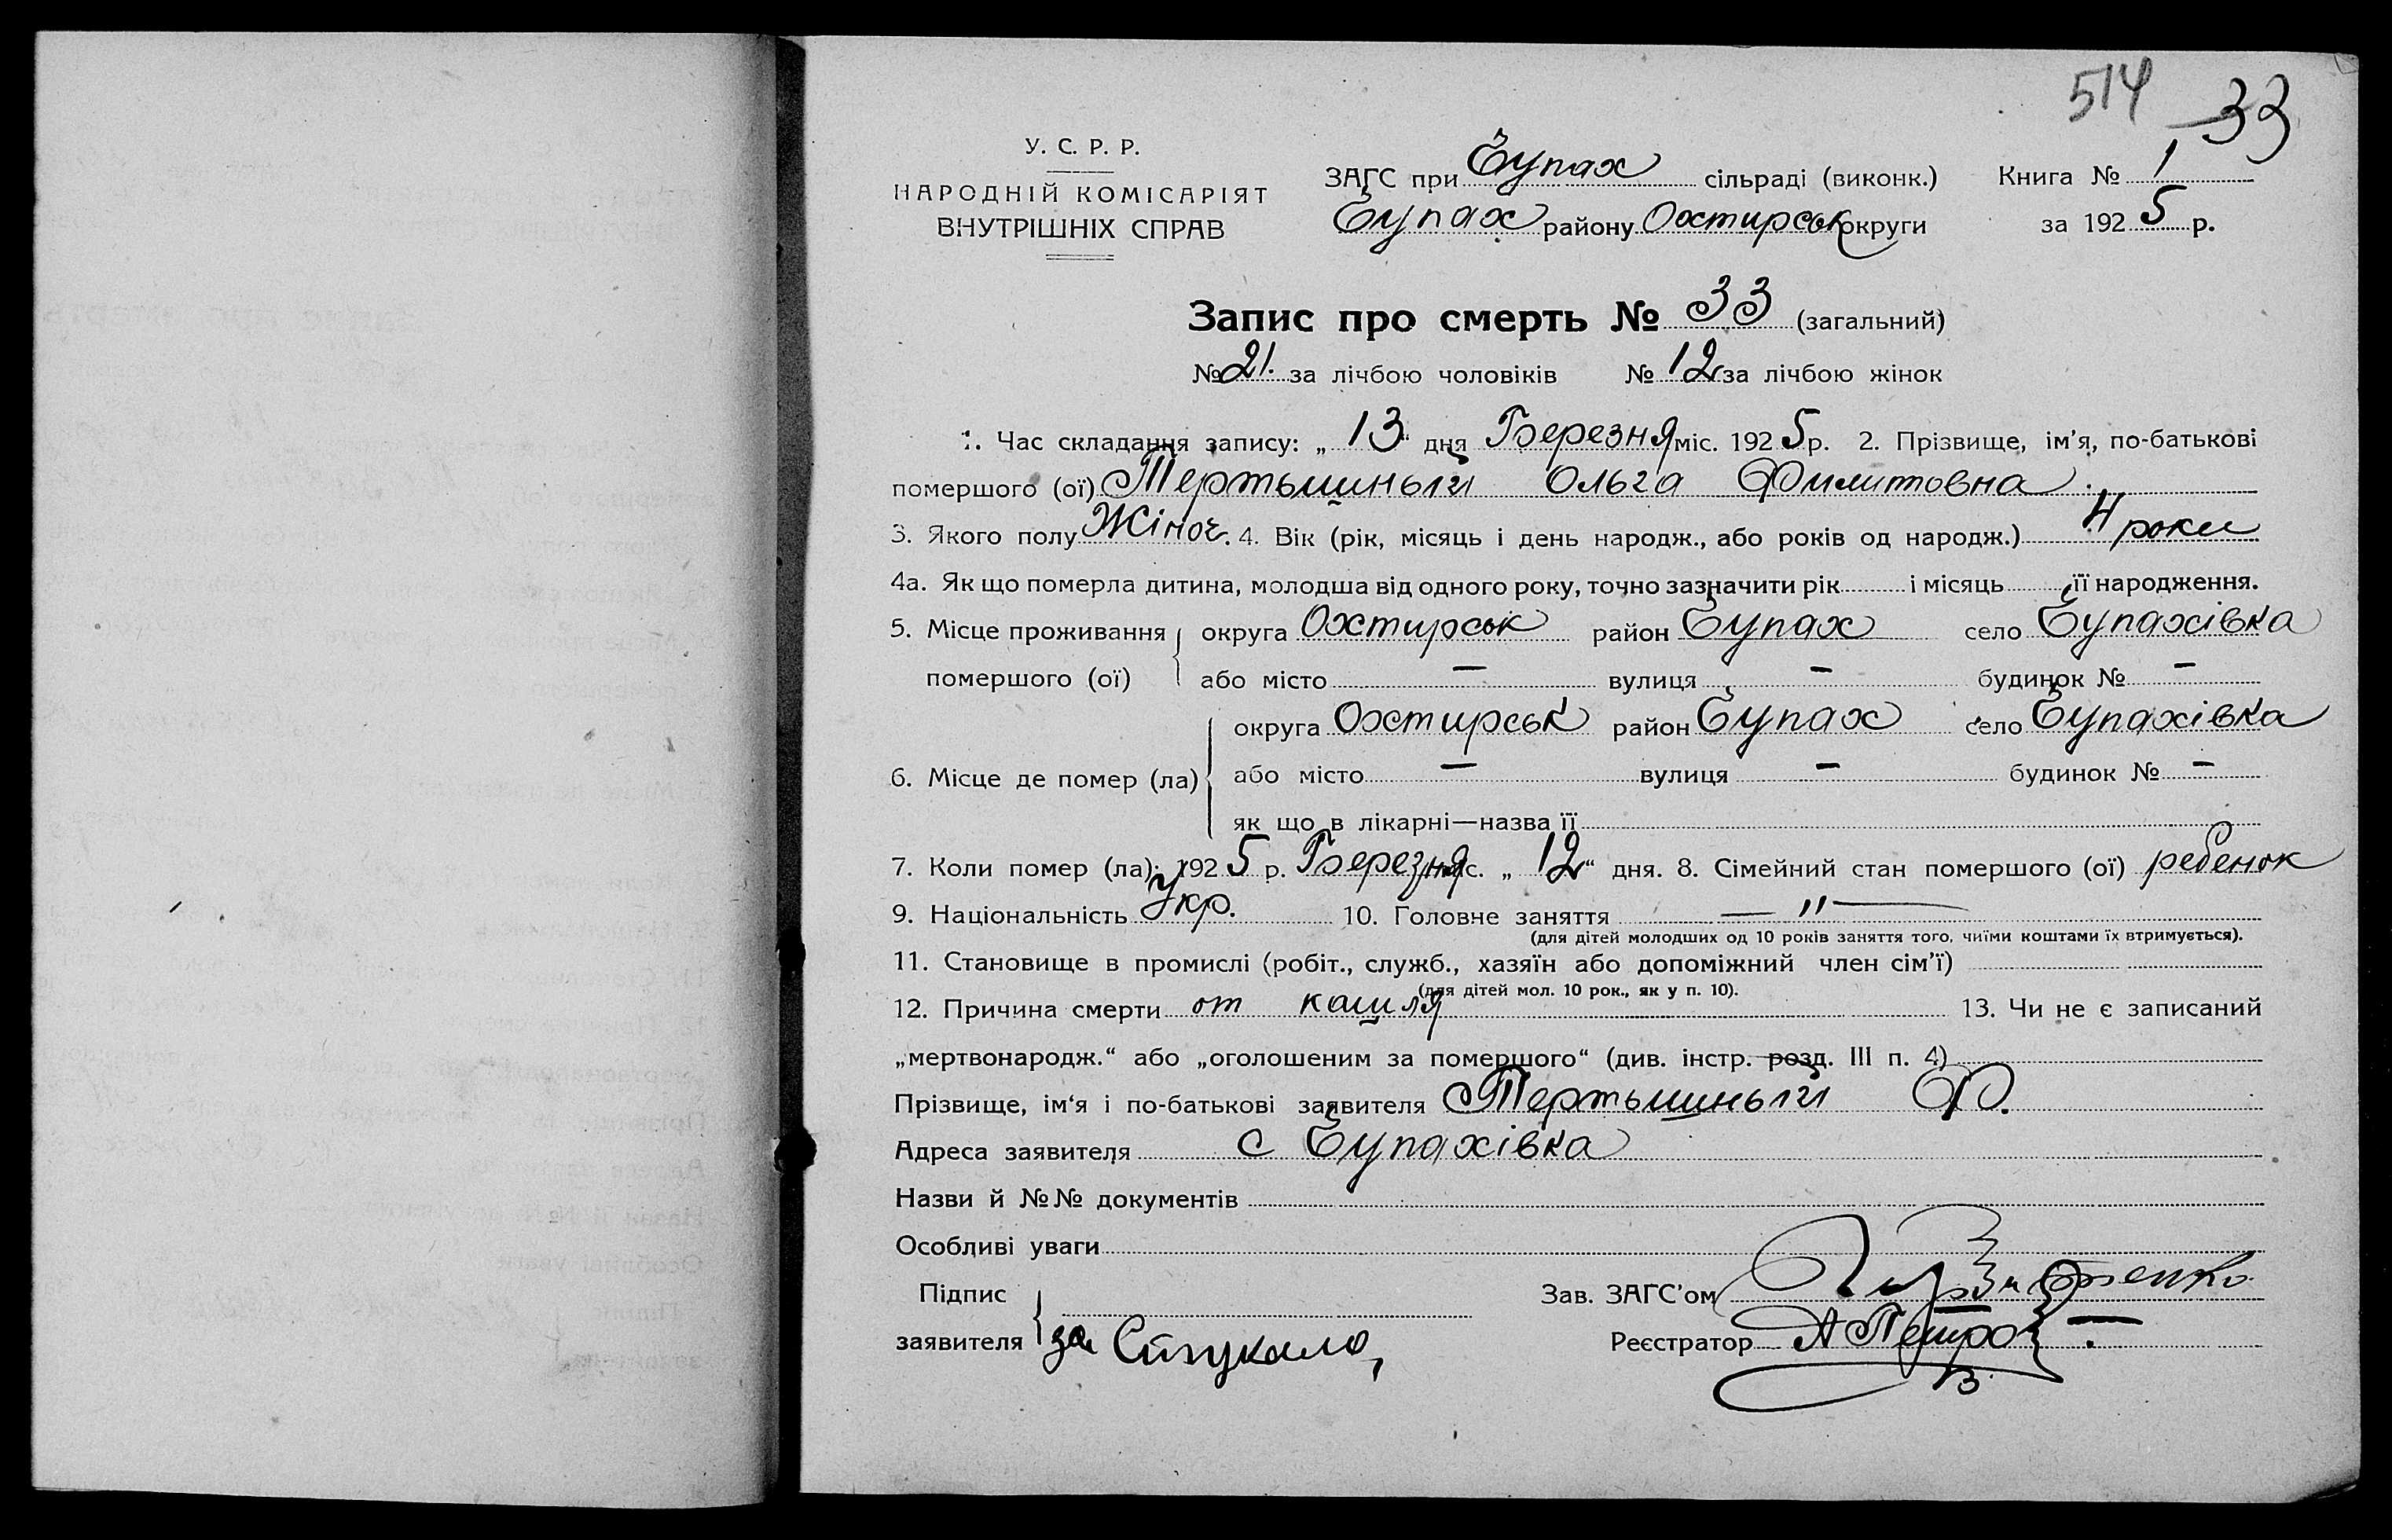 514 33
У. С. Р. Р.
НАРОДНІЙ КОМІСАРІЯТ
ВНУТРІШНІХ СПРАВ
ЗАГС при Чупах сільраді (виконк.) Книга № 1
Чупах району Охтирськ округи за 1925 р.
Запис про смерть № 33 (загальний)
№ 21. за лічбою чоловіків № 12 за лічбою жінок
1. Час складання запису: „13“ дня Березня міс. 1925 р. 2. Прізвище, ім’я, по-батькові
помершого (ої) Тертышный Ольга Филитовна.
3. Якого полу Жіноч. 4. Вік (рік, місяць і день народж., або років од народж.) 4 роки
4а. Як що померла дитина, молодша від одного року, точно зазначити рік і місяць її народження.
5. Місце проживання округа Охтирськ район Чупах село Чупахівка
помершого (ої) або місто — вулиця — будинок № —
округа Охтирськ район Чупах село Чупахівка
6. Місце де помер (ла) або місто — вулиця — будинок № —
як що в лікарні—назва її
7. Коли помер (ла): 1925 р. Березня міс. „12“ дня. 8. Сімейний стан помершого (ої) ребенок
9. Національність Укр. 10. Головне заняття — „ —
(для дітей молодших од 10 років заняття того, чиїми коштами їх втримується).
11. Становище в промислі (робіт., служб., хазяїн або допоміжний член сім’ї)
(для дітей мол. 10 рок., як у п. 10).
12. Причина смерти от кашля 13. Чи не є записаний
„мертвонародж.“ або „оголошеним за помершого“ (див. інстр. розд. III п. 4)
Прізвище, ім‘я і по-батькові заявителя Тертышный Ф.
Адреса заявителя с Чупахівка
Назви й №№ документів
Особливі уваги
Підпис Зав. ЗАГС’ом
заявителя за Стукало, Реєстратор А Петро